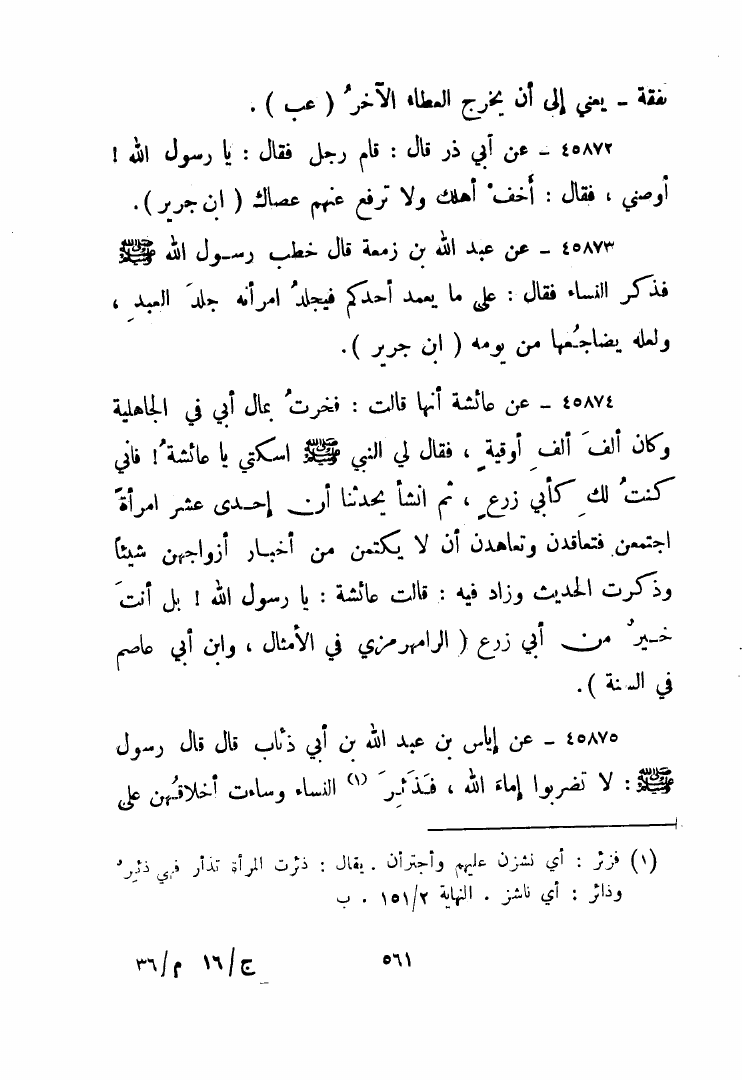 نفقة ـ يعني إلى أن يخرج العطاء الآخرُ ( عب ) .
٤٥٨٧٢ ـ عن أبي ذر قال : قام رجل فقال : يا رسول الله !
أوصني ، فقال : أَخفْ أهلك ولا ترفع عنهم عصاك ( ابن جرير ) .
٤٥٨٧٣ ـ عن عبد الله بن زمعة قال خطب رسول الله ﷺ
فذكر النساء فقال : على ما يعمد أحدكم فيجلدُ امرأته جلدَ العبدِ ،
ولعله يضاجُعها من يومه ( ابن جرير ) .
٤٥٨٧٤ ـ عن عائشة أنها قالت : فخرتُ بمال أبي في الجاهلية
وكان ألفَ ألفِ أوقيةٍ ، فقال لي النبي ﷺ اسكتي يا عائشةُ ! فاني
كنتُ لكِ كأبي زرعٍ ، ثم انشأ يحدثنا أن إحدى عشر امرأةً
اجتمعن فتعاقدن وتعاهدن أن لا يكتمن من أخبار أزواجهن شيئاً
وذكرت الحديث وزاد فيه : قالت عائشة : يا رسول الله ! بل أنتَ
خيرٌ من أبي زرع ( الرامهرمزي في الأمثال ، وابن أبي عاصم
في السنة ) .
٤٥٨٧٥ ـ عن إياس بن عبد الله بن أبي ذئاب قال قال رسول
ﷺ : لا تضربوا إماءَ الله ، فَذَئِرَ (١) النساء وساءت أخلاقُهن على
(١) فزئر : أي نشزن عليهم وأجترأن . يقال : ذئرت المرأة تذأر فهي ذئِرٌ
وذائر : أي ناشز . النهاية ١٥١/٢ . ب
٥٦١
ج/١٦ م/٣٦